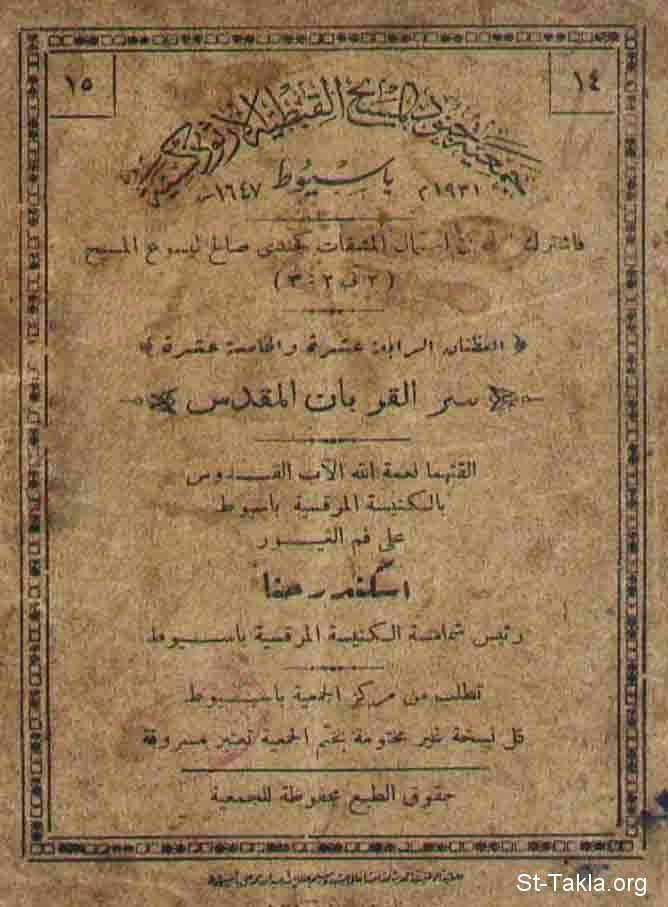 ١٤
١٥
جمعية جنود المسيح القبطية الارثوذكسية
١٩٣١ م باسيوط ١٦٤٧ ش
فاشترك أنت في احتمال المشقات كجندي صالح ليسوع المسيح
(٢ تي ٢ : ٣)
العظتان الرابعة عشرة والخامسة عشرة
سر القربان المقدس
القتهما نعمة الله الآب القدوس
بالكنيسة المرقسية باسيوط
على فم الغيور
اسكندر حنا
رئيس شمامسة الكنيسة المرقسية باسيوط
تطلب من مركز الجمعية باسيوط
كل نسخة غير مختومة بختم الجمعية تعتبر مسروقة
حقوق الطبع محفوظة للجمعية
St-Takla.org